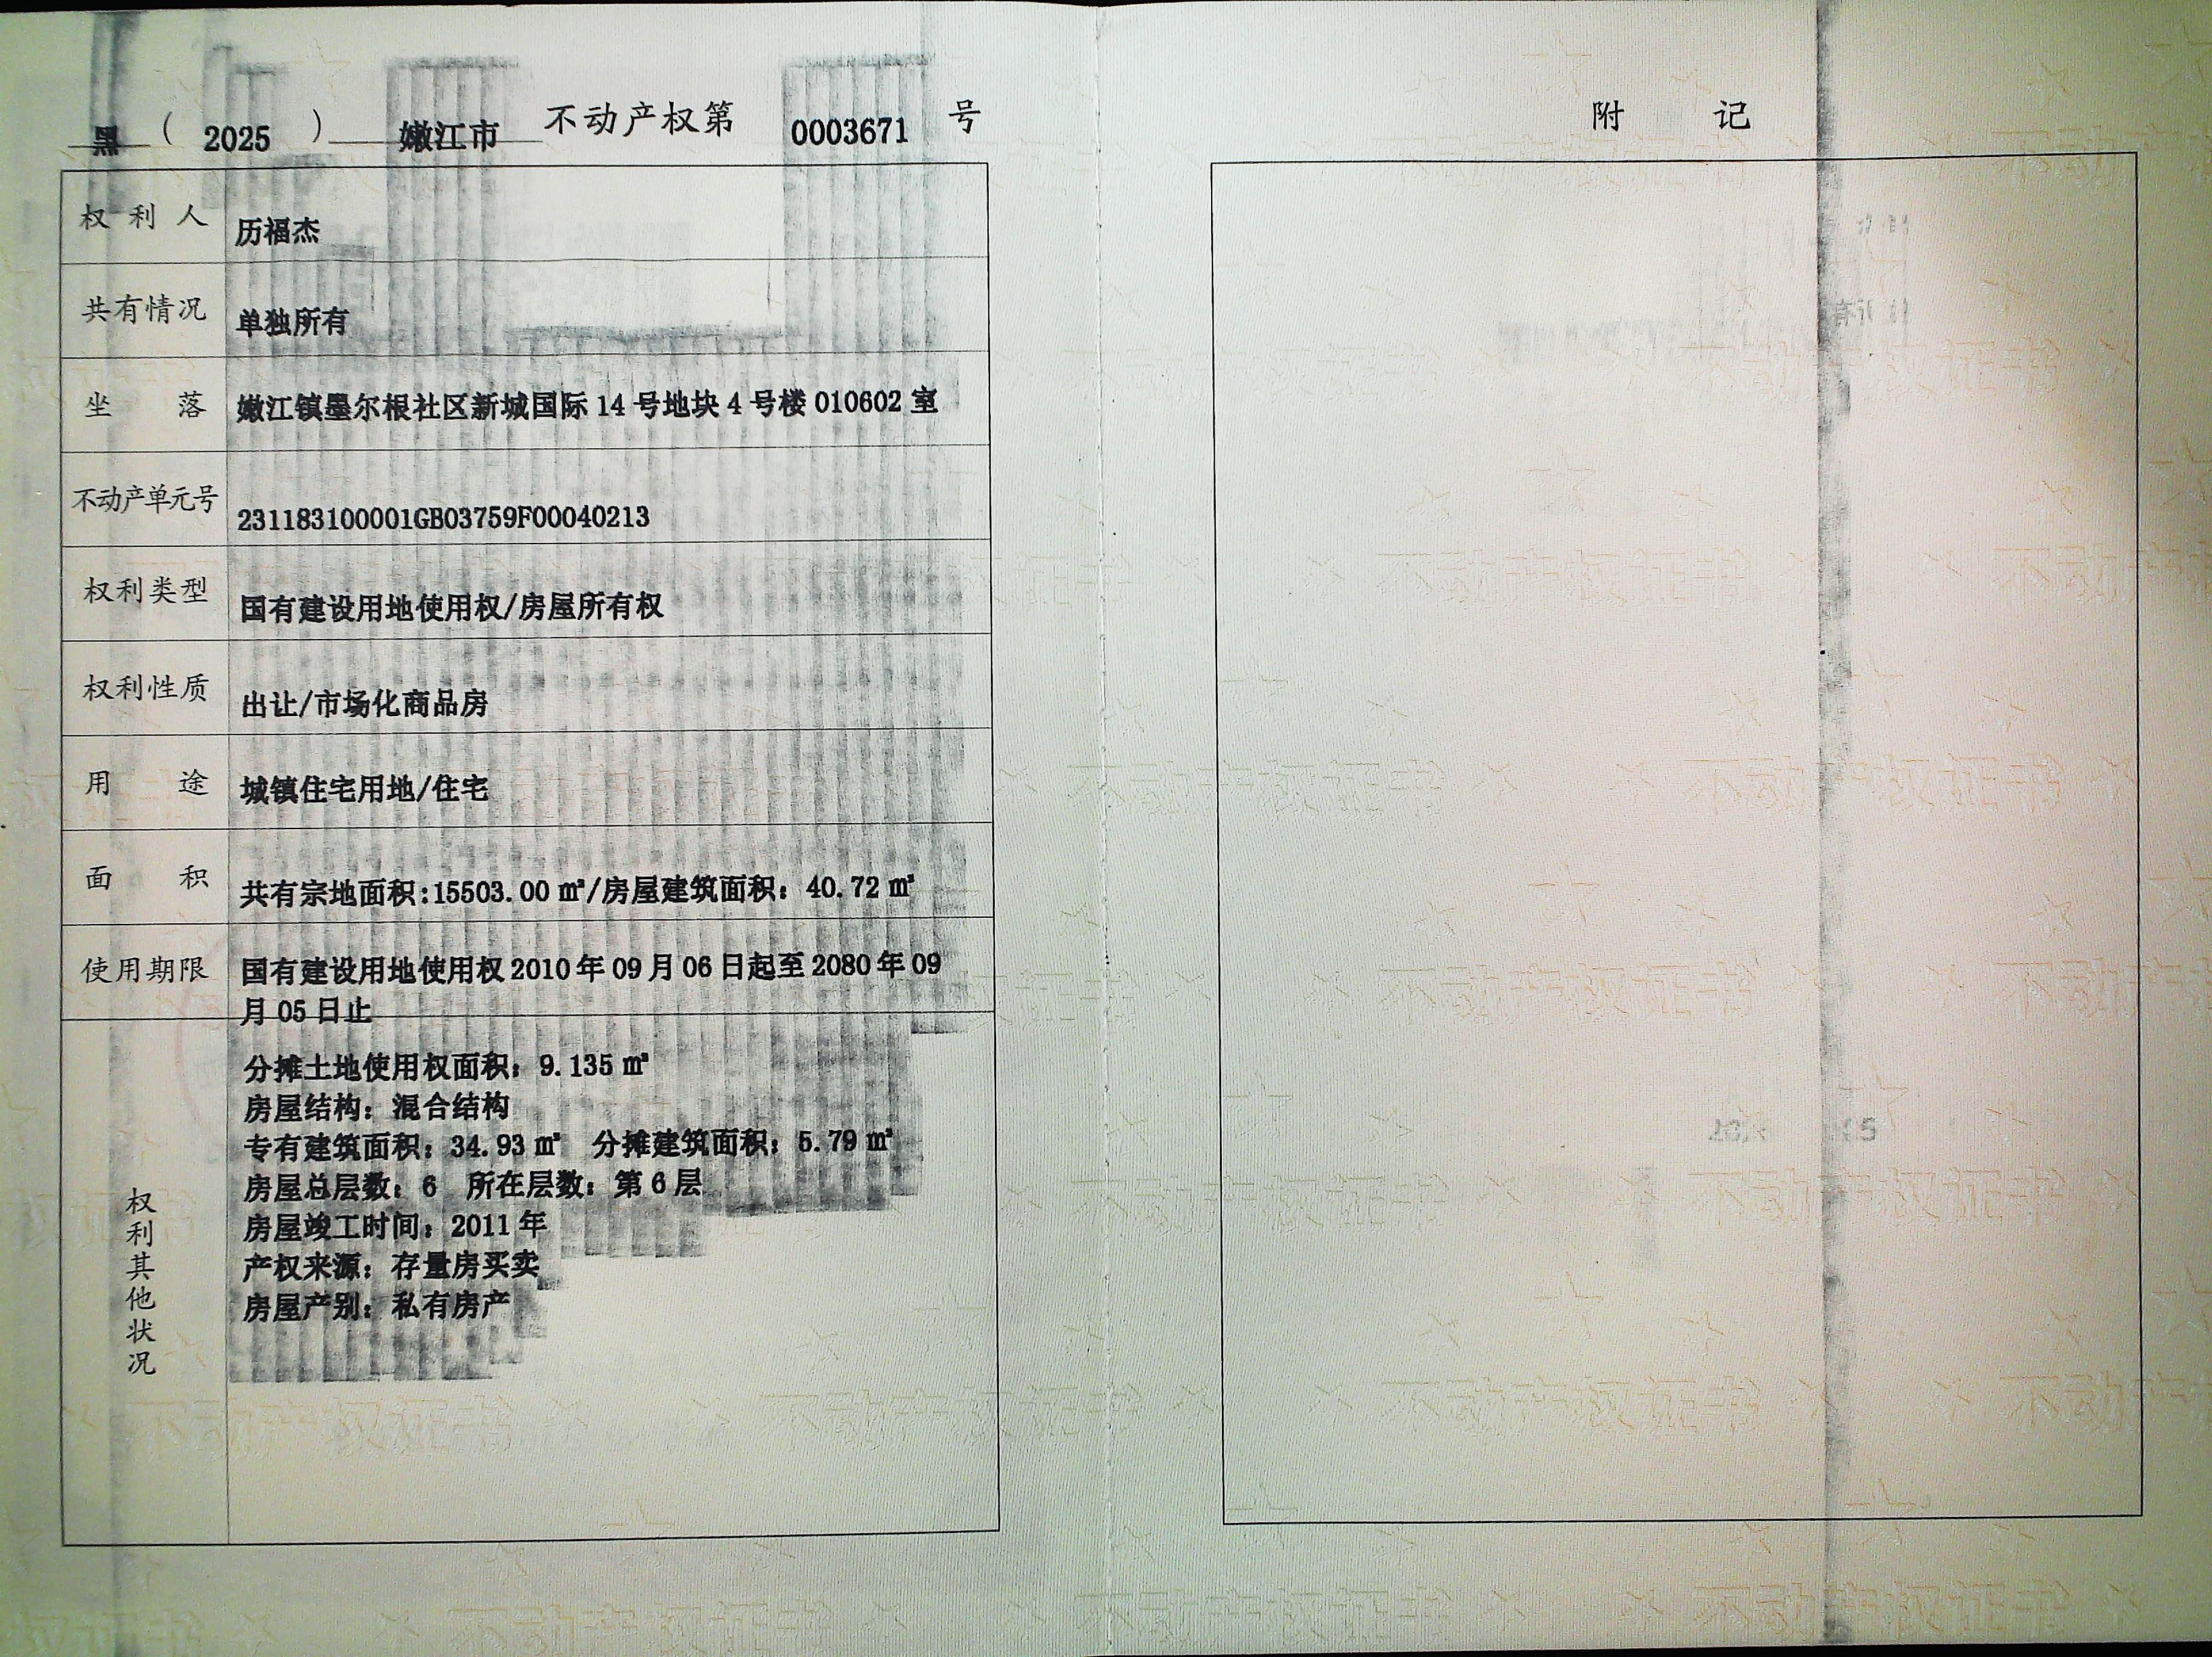 黑（2025）嫩江市不动产权第0003671号
权利人 历福杰
共有情况 单独所有
坐落 嫩江镇墨尔根社区新城国际14号地块4号楼010602室
不动产单元号 231183100001GB03759F00040213
权利类型 国有建设用地使用权/房屋所有权
权利性质 出让/市场化商品房
用途 城镇住宅用地/住宅
面积 共有宗地面积:15503.00㎡/房屋建筑面积：40.72㎡
使用期限 国有建设用地使用权2010年09月06日起至2080年09
月05日止
权利其他状况
分摊土地使用权面积：9.135㎡
房屋结构：混合结构
专有建筑面积：34.93㎡ 分摊建筑面积：5.79㎡
房屋总层数：6 所在层数：第6层
房屋竣工时间：2011年
产权来源：存量房买卖
房屋产别：私有房产
附记
不动产权证书